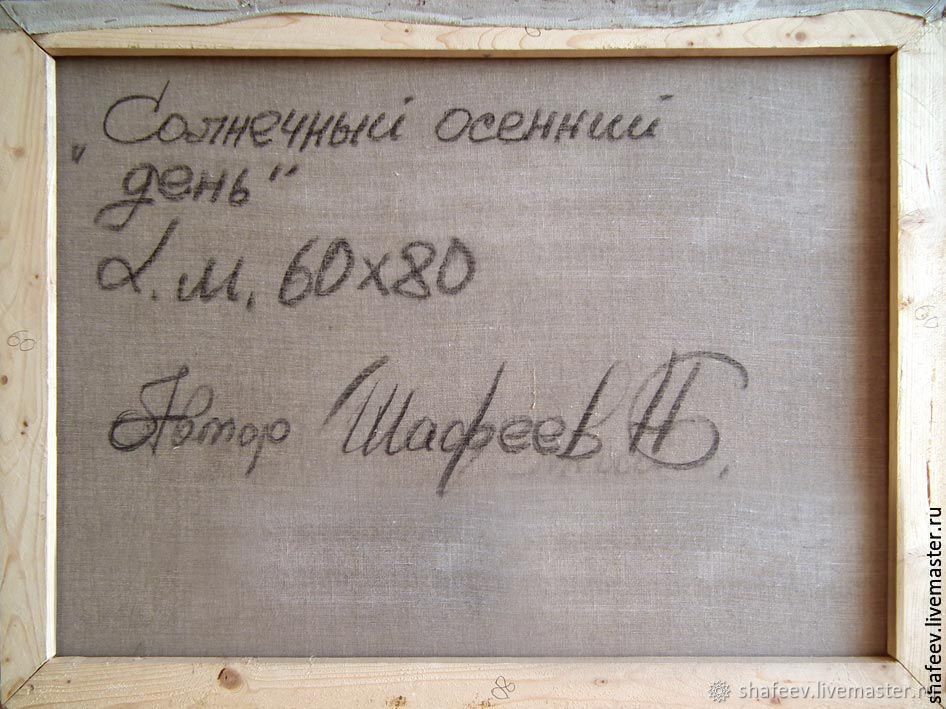 „Солнечный осенний
день“
х.м. 60х80
Автор Шафеев Н Б.
60
80
shafeev.livemaster.ru
shafeev.livemaster.ru